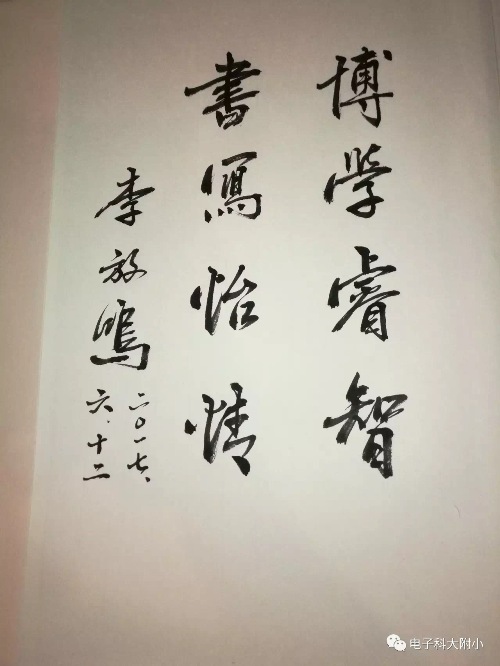 博学睿智
書寫怡情
李放鳴
二〇一七、
六、十二
电子科大附小